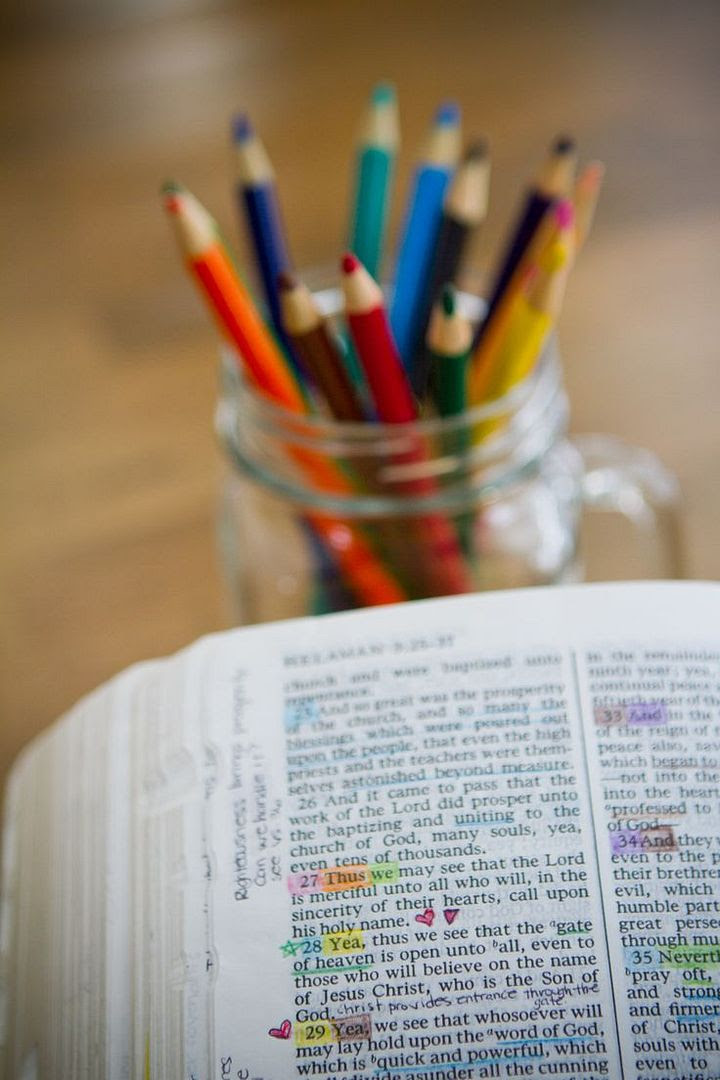 HELAMAN 3:25-37
church and were baptized unto
repentance.
25 And so great was the prosperity
of the church, and so many the
blessings which were poured out
upon the people, that even the high
priests and the teachers were them-
selves astonished beyond measure.
26 And it came to pass that the
work of the Lord did prosper unto
the baptizing and uniting to the
church of God, many souls, yea,
even tens of thousands.
27 Thus we may see that the Lord
is merciful unto all who will, in the
sincerity of their hearts, call upon
his holy name.
28 Yea, thus we see that the ᵃgate
of heaven is open unto ᵇall, even to
those who will believe on the name
of Jesus Christ, who is the Son of
God.
christ provides entrance through the
gate
29 Yea, we see that whosoever will
may lay hold upon the ᵃword of God,
which is ᵇquick and powerful, which
divide asunder all the cunning
Righteousness brings prosperity
Can we handle it?
see vs
in the remainder
ninth year; yea,
continual peace
fiftieth year of th
33 And in the
of the reign of
peace also,
which began to
—not into the
into the heart
ᵃprofessed to
of God—
34 And they
even to the p
their brethren
evil, which
humble part
great perse
through mu
35 Neverth
ᵇpray oft,
and strong
and firmer
of Christ,
souls with
even to